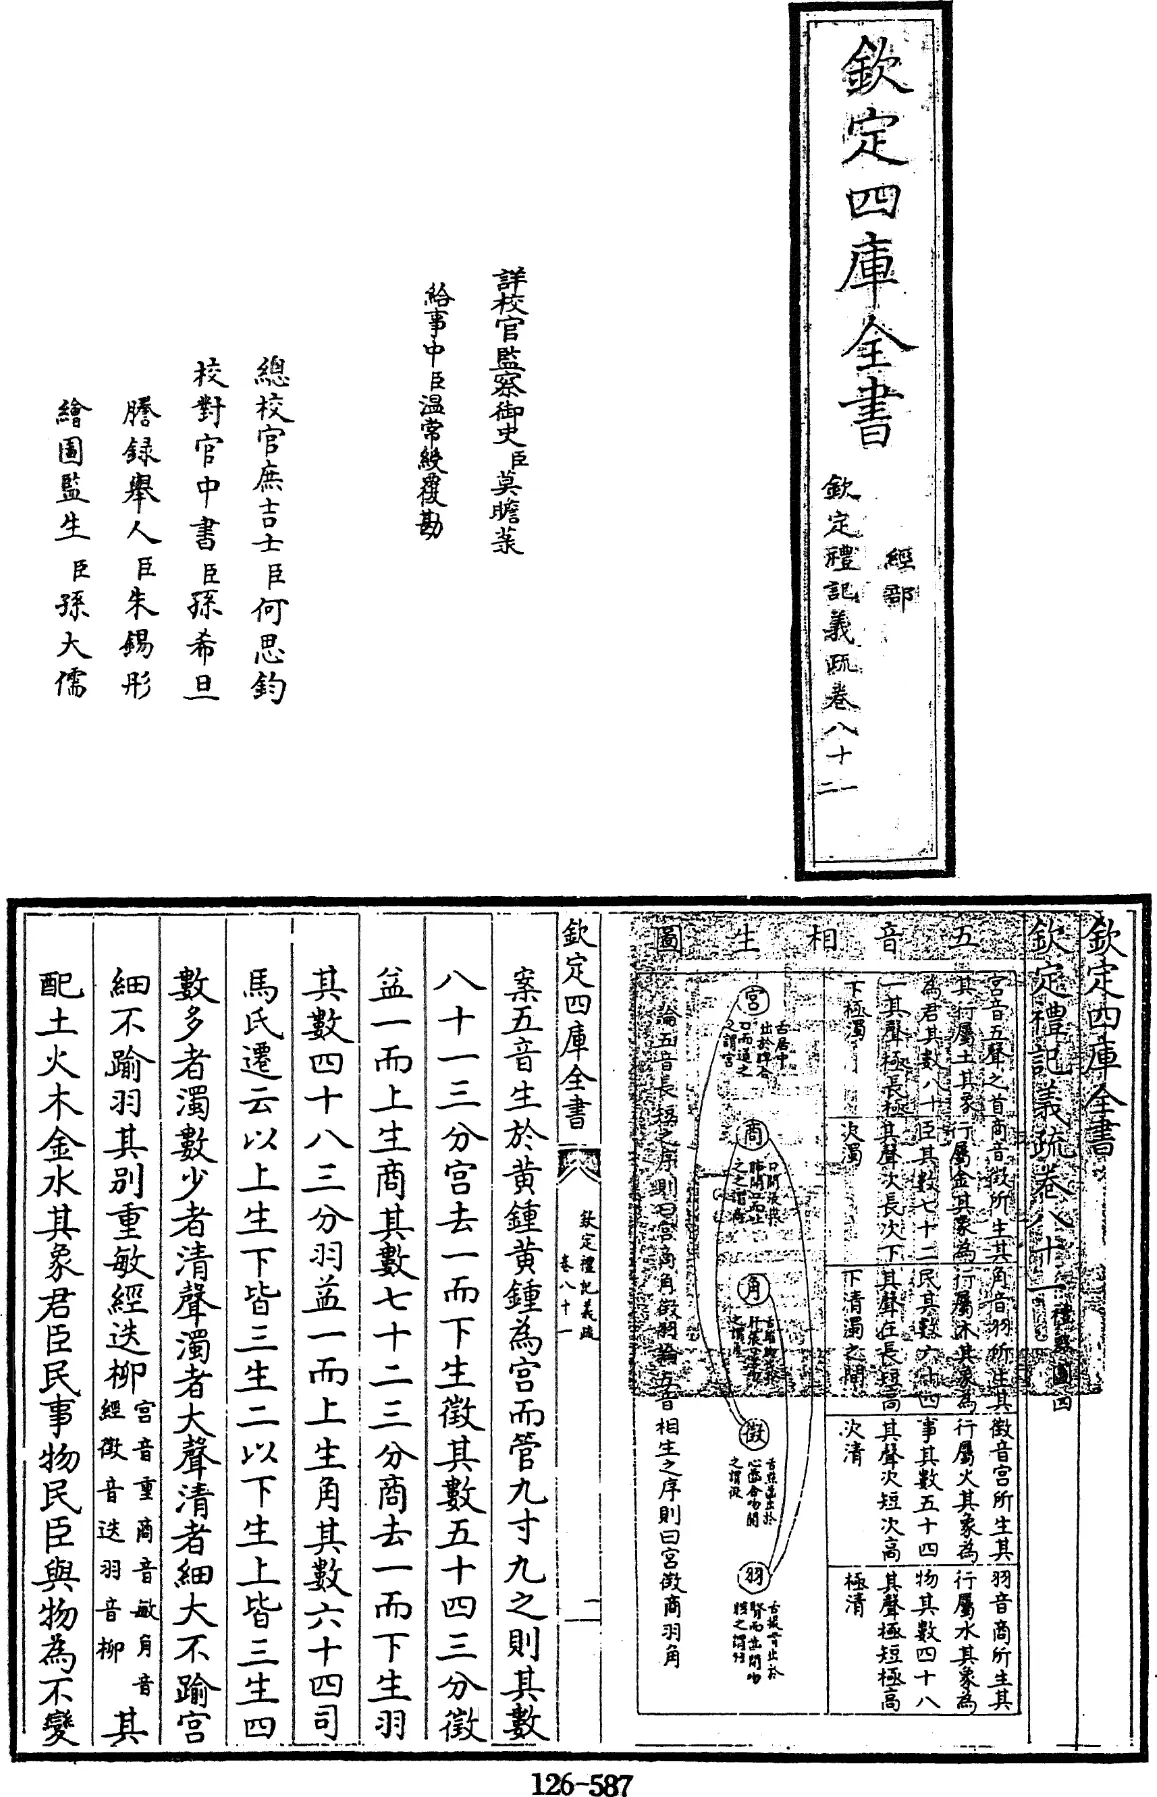 欽定四庫全書
經部
欽定禮記義疏卷八十二
詳校官監察御史臣莫瞻菉
給事中臣温常綬覆勘
總校官庶吉士臣何思鈞
校對官中書臣孫希旦
謄錄舉人臣朱錫彤
繪圖監生臣孫大儒
欽定四庫全書
欽定禮記義疏卷八十一 禮器圖四
五音相生圖
宮音五聲之首
其行屬土其象
為君其數八十
一其聲極長極
下極濁
商音徵所生其
行屬金其象為
臣其數七十二
其聲次長次下
次濁
角音羽所生其
行屬木其象為
民其數六十四
其聲在長短高
下清濁之間
徵音宮所生其
行屬火其象為
事其數五十四
其聲次短次高
次清
羽音商所生其
行屬水其象為
物其數四十八
其聲極短極高
極清
宮
舌居中
出於脾合
口而通之
之謂宮
商
口開
之謂商
角
徵
之謂徵
羽
論五音長短之序則曰宮商角徵羽論五音相生之序則曰宮徵商羽角
欽定四庫全書
欽定禮記義疏
卷八十一
一
案五音生於黄鍾黄鍾為宮而管九寸九之則其數
八十一三分宮去一而下生徵其數五十四三分徵
益一而上生商其數七十二三分商去一而下生羽
其數四十八三分羽益一而上生角其數六十四司
馬氏遷云以上生下皆三生二以下生上皆三生四
數多者濁數少者清聲濁者大聲清者細大不踰宮
細不踰羽其别重敏經迭柳 宮音重商音敏角音經徵音迭羽音柳 其
配土火木金水其象君臣民事物民臣與物為不變
126-587